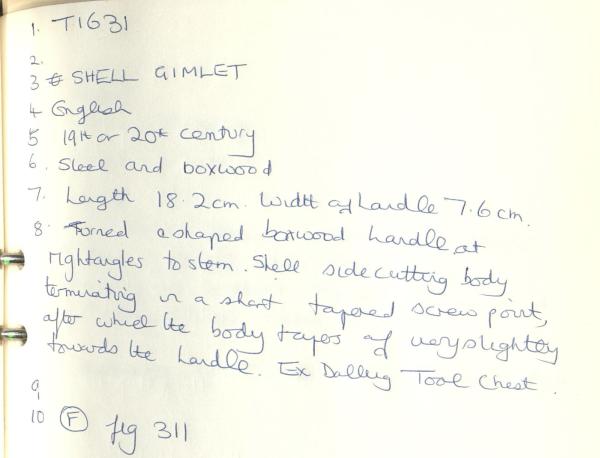 1. T1631
2.
3 SHELL GIMLET
4 English
5 19th or 20th century
6. Steel and boxwood
7. Length 18.2cm. Width of handle 7.6 cm.
8. Turned & shaped boxwood handle at
rightangles to stem. Shell side cutting body
terminating in a short tapered screw point,
after which the body tapers off very slightly
towards the handle. Ex Tool Chest.
9
10 (F) fig 311